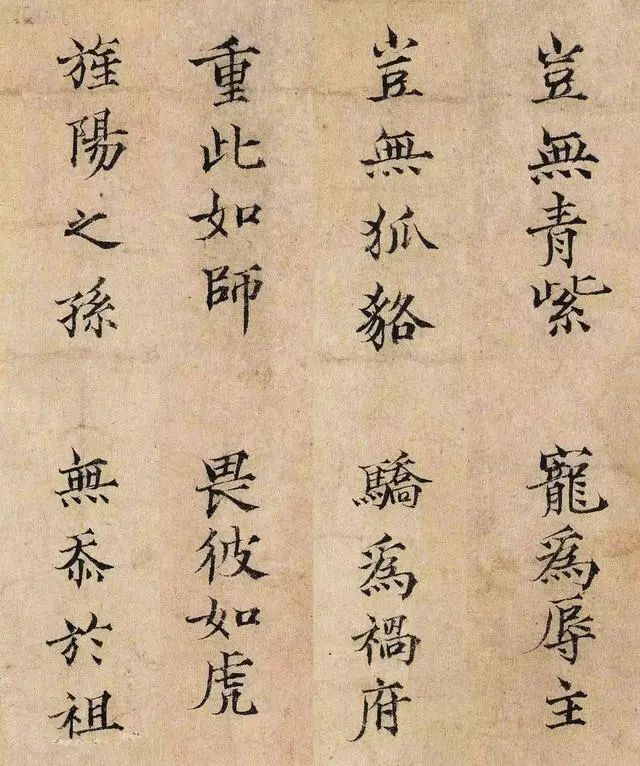 豈無青紫
寵為辱主
豈無狐貉
驕為禍府
重此如師
畏彼如虎
旌陽之孫
無忝於祖